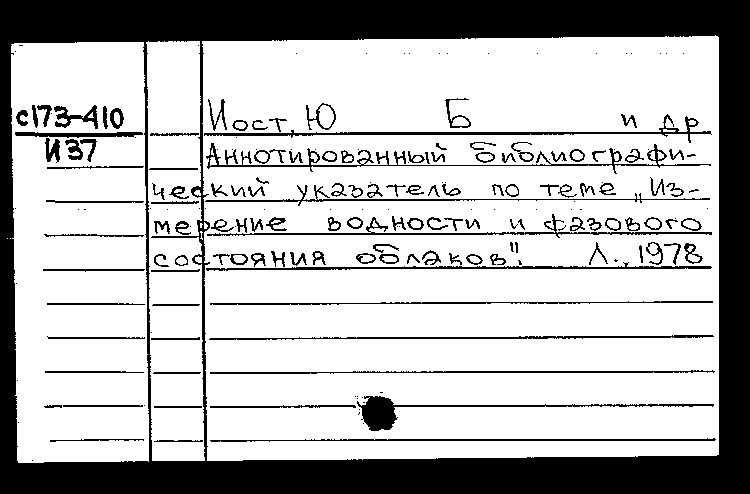 с173-410 Иост, Ю Б и др
И37 Аннотированный библиографи-
ческий указатель по теме „Из-
мерение водности и фазового
состояния облаков". Л., 1978